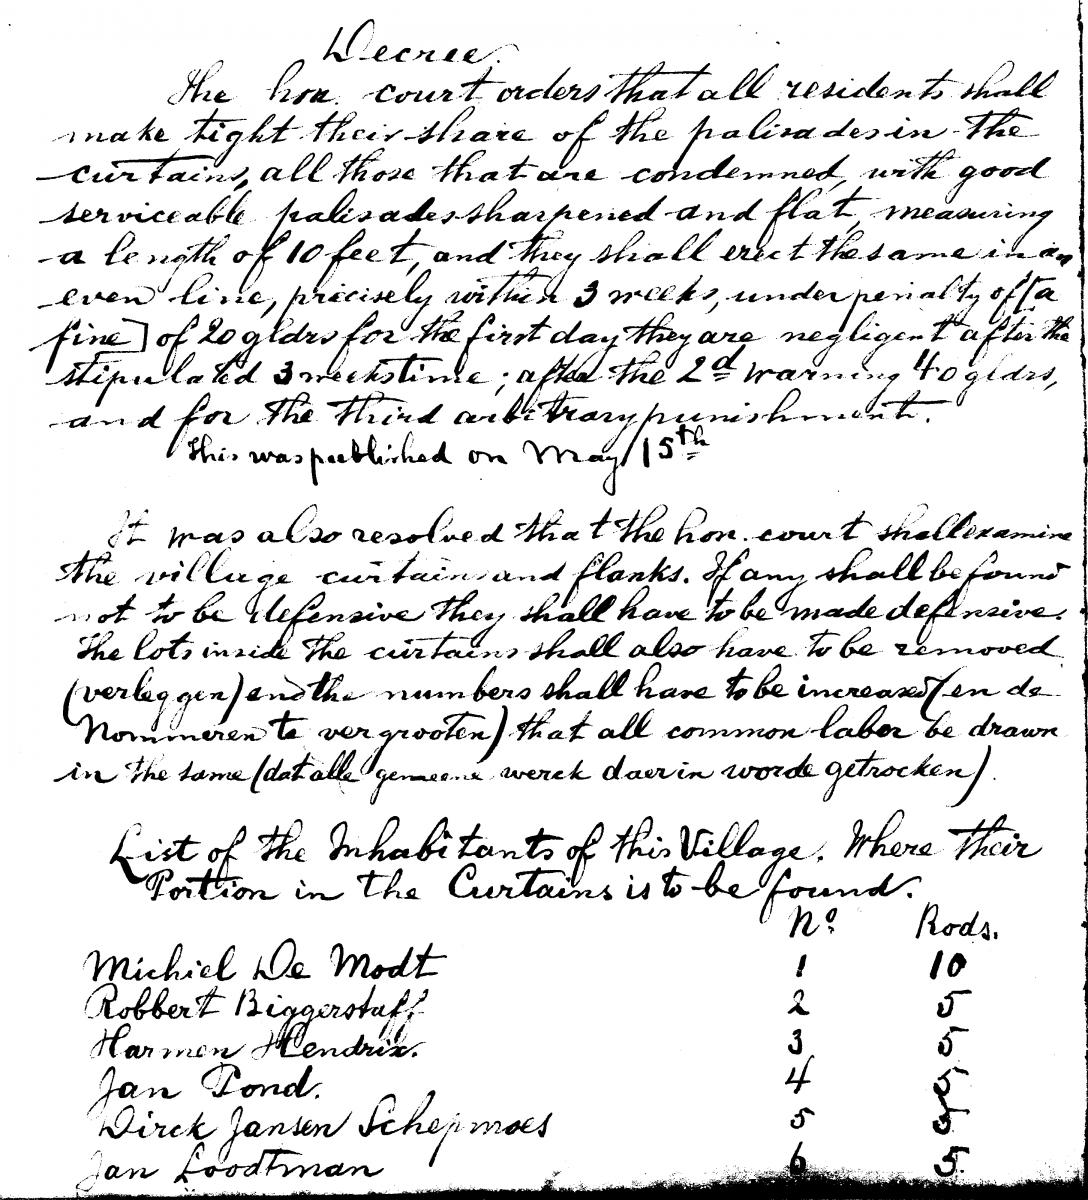 Decree.
The hon. court orders that all residents shall
make tight their share of the palisades in the
curtains, all those that are condemned, with good
serviceable palisades sharpened and flat, measuring
a length of 10 feet, and they shall erect the same in an
even line, precisely within 3 weeks, under penalty of [a
fine] of 20 gldrs for the first day they are negligent after the
stipulated 3 weeks time; after the 2d warning 40 gldrs,
and for the third arbitrary punishment.
This was published on May 15th
It was also resolved that the hon. court shall examine
the village curtains and flanks. If any shall be found
not to be defensive they shall have to be made defensive.
The lots inside the curtains shall also have to be removed
(verleggen) and the numbers shall have to be increased (en de
Nommeren te vergrooten) that all common labor be drawn
in the same (dat alle gemeene werck daer in worde getrocken).
List of the Inhabitants of this Village. Where their
Portion in the Curtains is to be found.
No. Rods.
Michiel De Modt 1 10
Robbert Biggerstaff 2 5
Harmen Hendrix. 3 5
Jan Pond. 4 5
Dirck Jansen Schepmoes 5
Jan Loodtman 6 5.